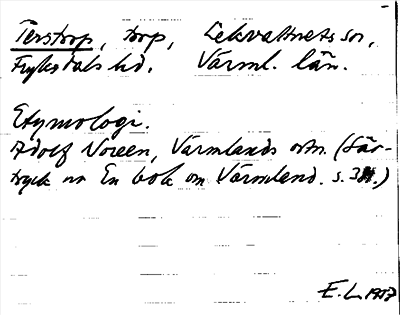 Terstorp, torp, Lekvattnets sn,
Fryksdals hd. Värml. län.
Etymologi.
Adolf Noreen, Värmlands ortn. (Sär-
tryck ur En bok om Värmland. s.)
E. L. 1917